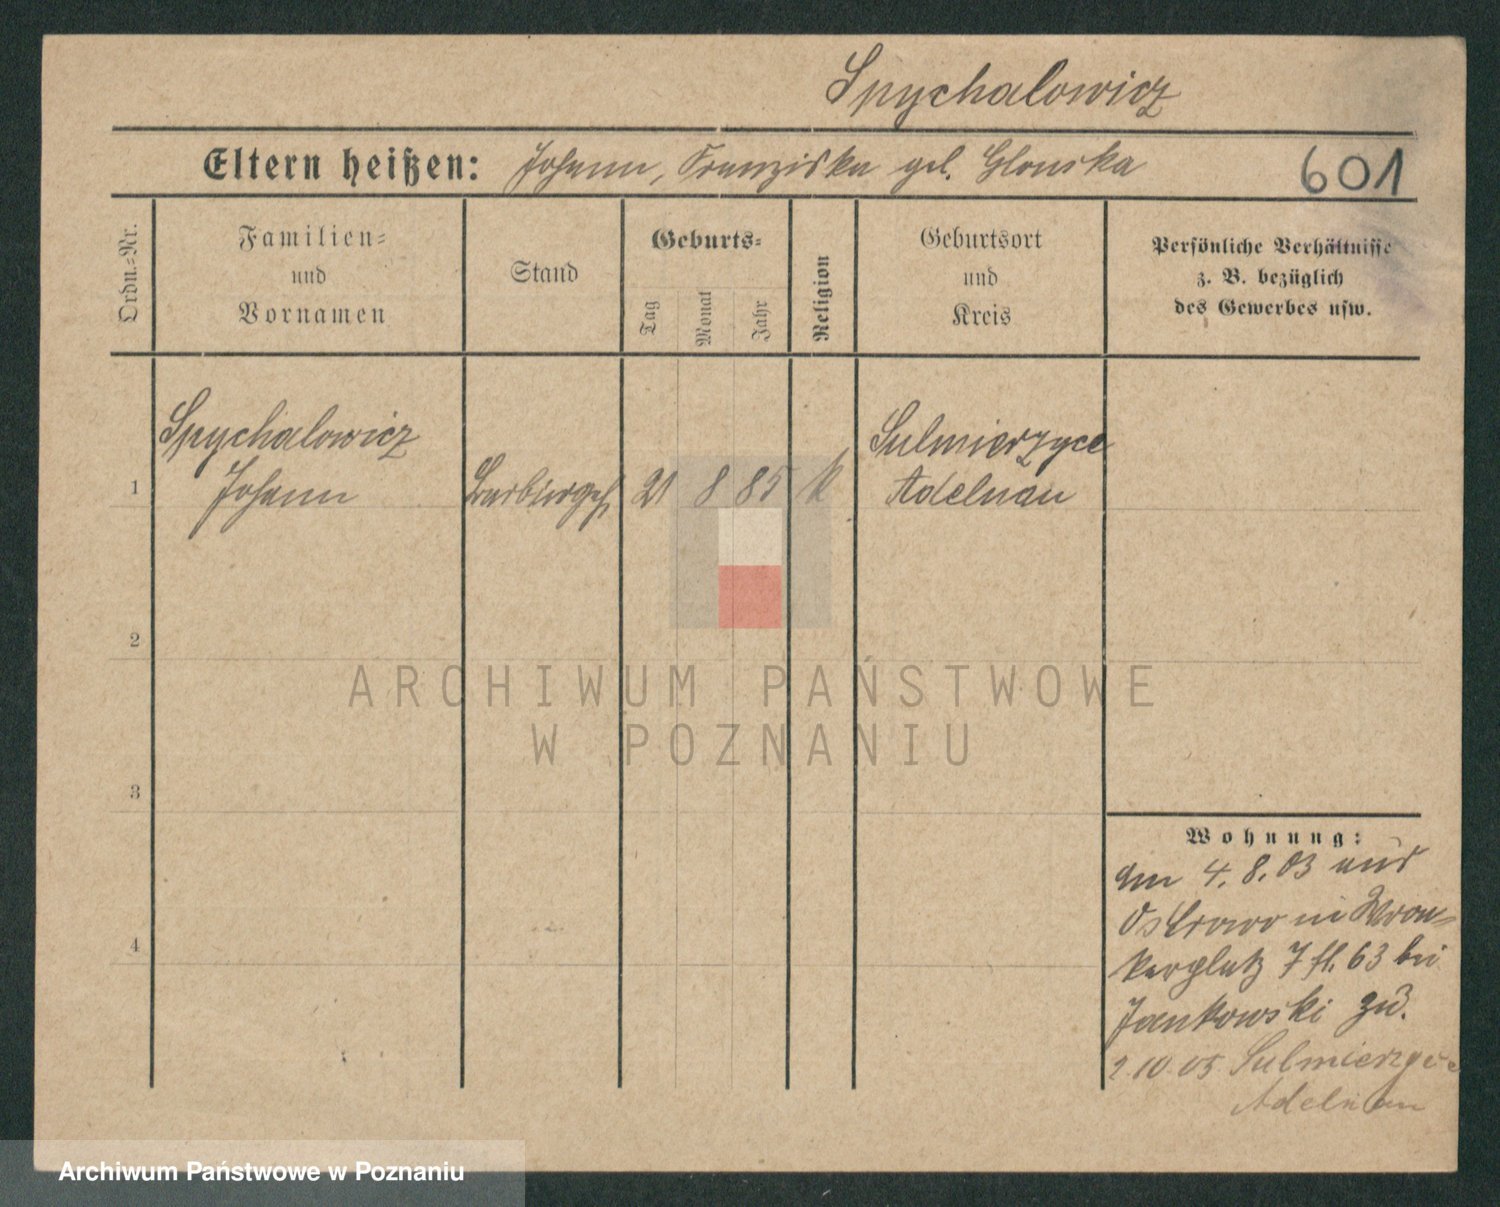 Spychalowicz
Eltern heißen: Johann, Franziska geb. Glonska
601
Ordn.-Nr.
Familien-
und
Vornamen
Stand
Geburts-
Tag
Monat
Jahr
Religion
Geburtsort
und
Kreis
Persönliche Verhältnisse
z. B. bezüglich
des Gewerbes usw.
Spychalowicz
Johann
Barbiergeh
21 8 85 k
Sulmierzyce
Adelnau
1
2
3
4
Wohnung:
am 4. 8. 03 aus
Ostrowo in Wron-
kerplatz 7 fl. 63 bei
Jankowski zu.
2.10.05 Sulmierzyce
Adelnau
ARCHIWUM PAŃSTWOWE
W POZNANIU
Archiwum Państwowe w Poznaniu